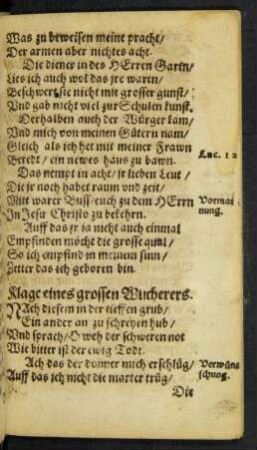 Was zu beweisen meine pracht/
Der armen aber nichtes acht.
Die diener in des HErren Gartn/
Lies ich auch wol das jre warin/
Beschwert sie nicht mit grosser gunst/
Vnd gab nicht viel zur Schulen kunst.
Derhalben auch der Würger kam/
Vnd mich von meinen Gütern nam/
Gleich als ich het mit meiner Frawn
Beredt/ ein newes haus zu bawn.
Luc. 12
Das nempt in acht/ jr lieben Leut/
Die jr noch habet raum vnd zeit/
Mitt warer Buss euch zu dem HErrn
In Jesu Christo zu bekehrn.
Vermanung.
Auff das jr ja nicht auch einmal
Empfinden möcht die grosse qual/
So ich empfind in meinem sinn/
Zetter das ich geboren bin.
Klage eines grossen Wucherers.
NAch diesem in der tieffen grub/
Ein ander an zu schreyen hub/
Vnd sprach/ O weh der schweren not
Wie bitter ist der ewig Todt.
Ach das der donner mich erschlüg/
Auff das ich nicht die marter trüg/
Verwünschung.
Die